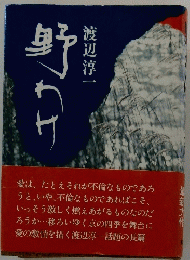 野わけ
渡辺淳一
愛は、たとえそれが不倫なものであろ
うと、いや、不倫なものであればこそ、
いっそう激しく燃えあがるものなのだ
ろうか…移ろいゆく京の四季を舞台に
愛の激情を描く渡辺淳一話題の長篇